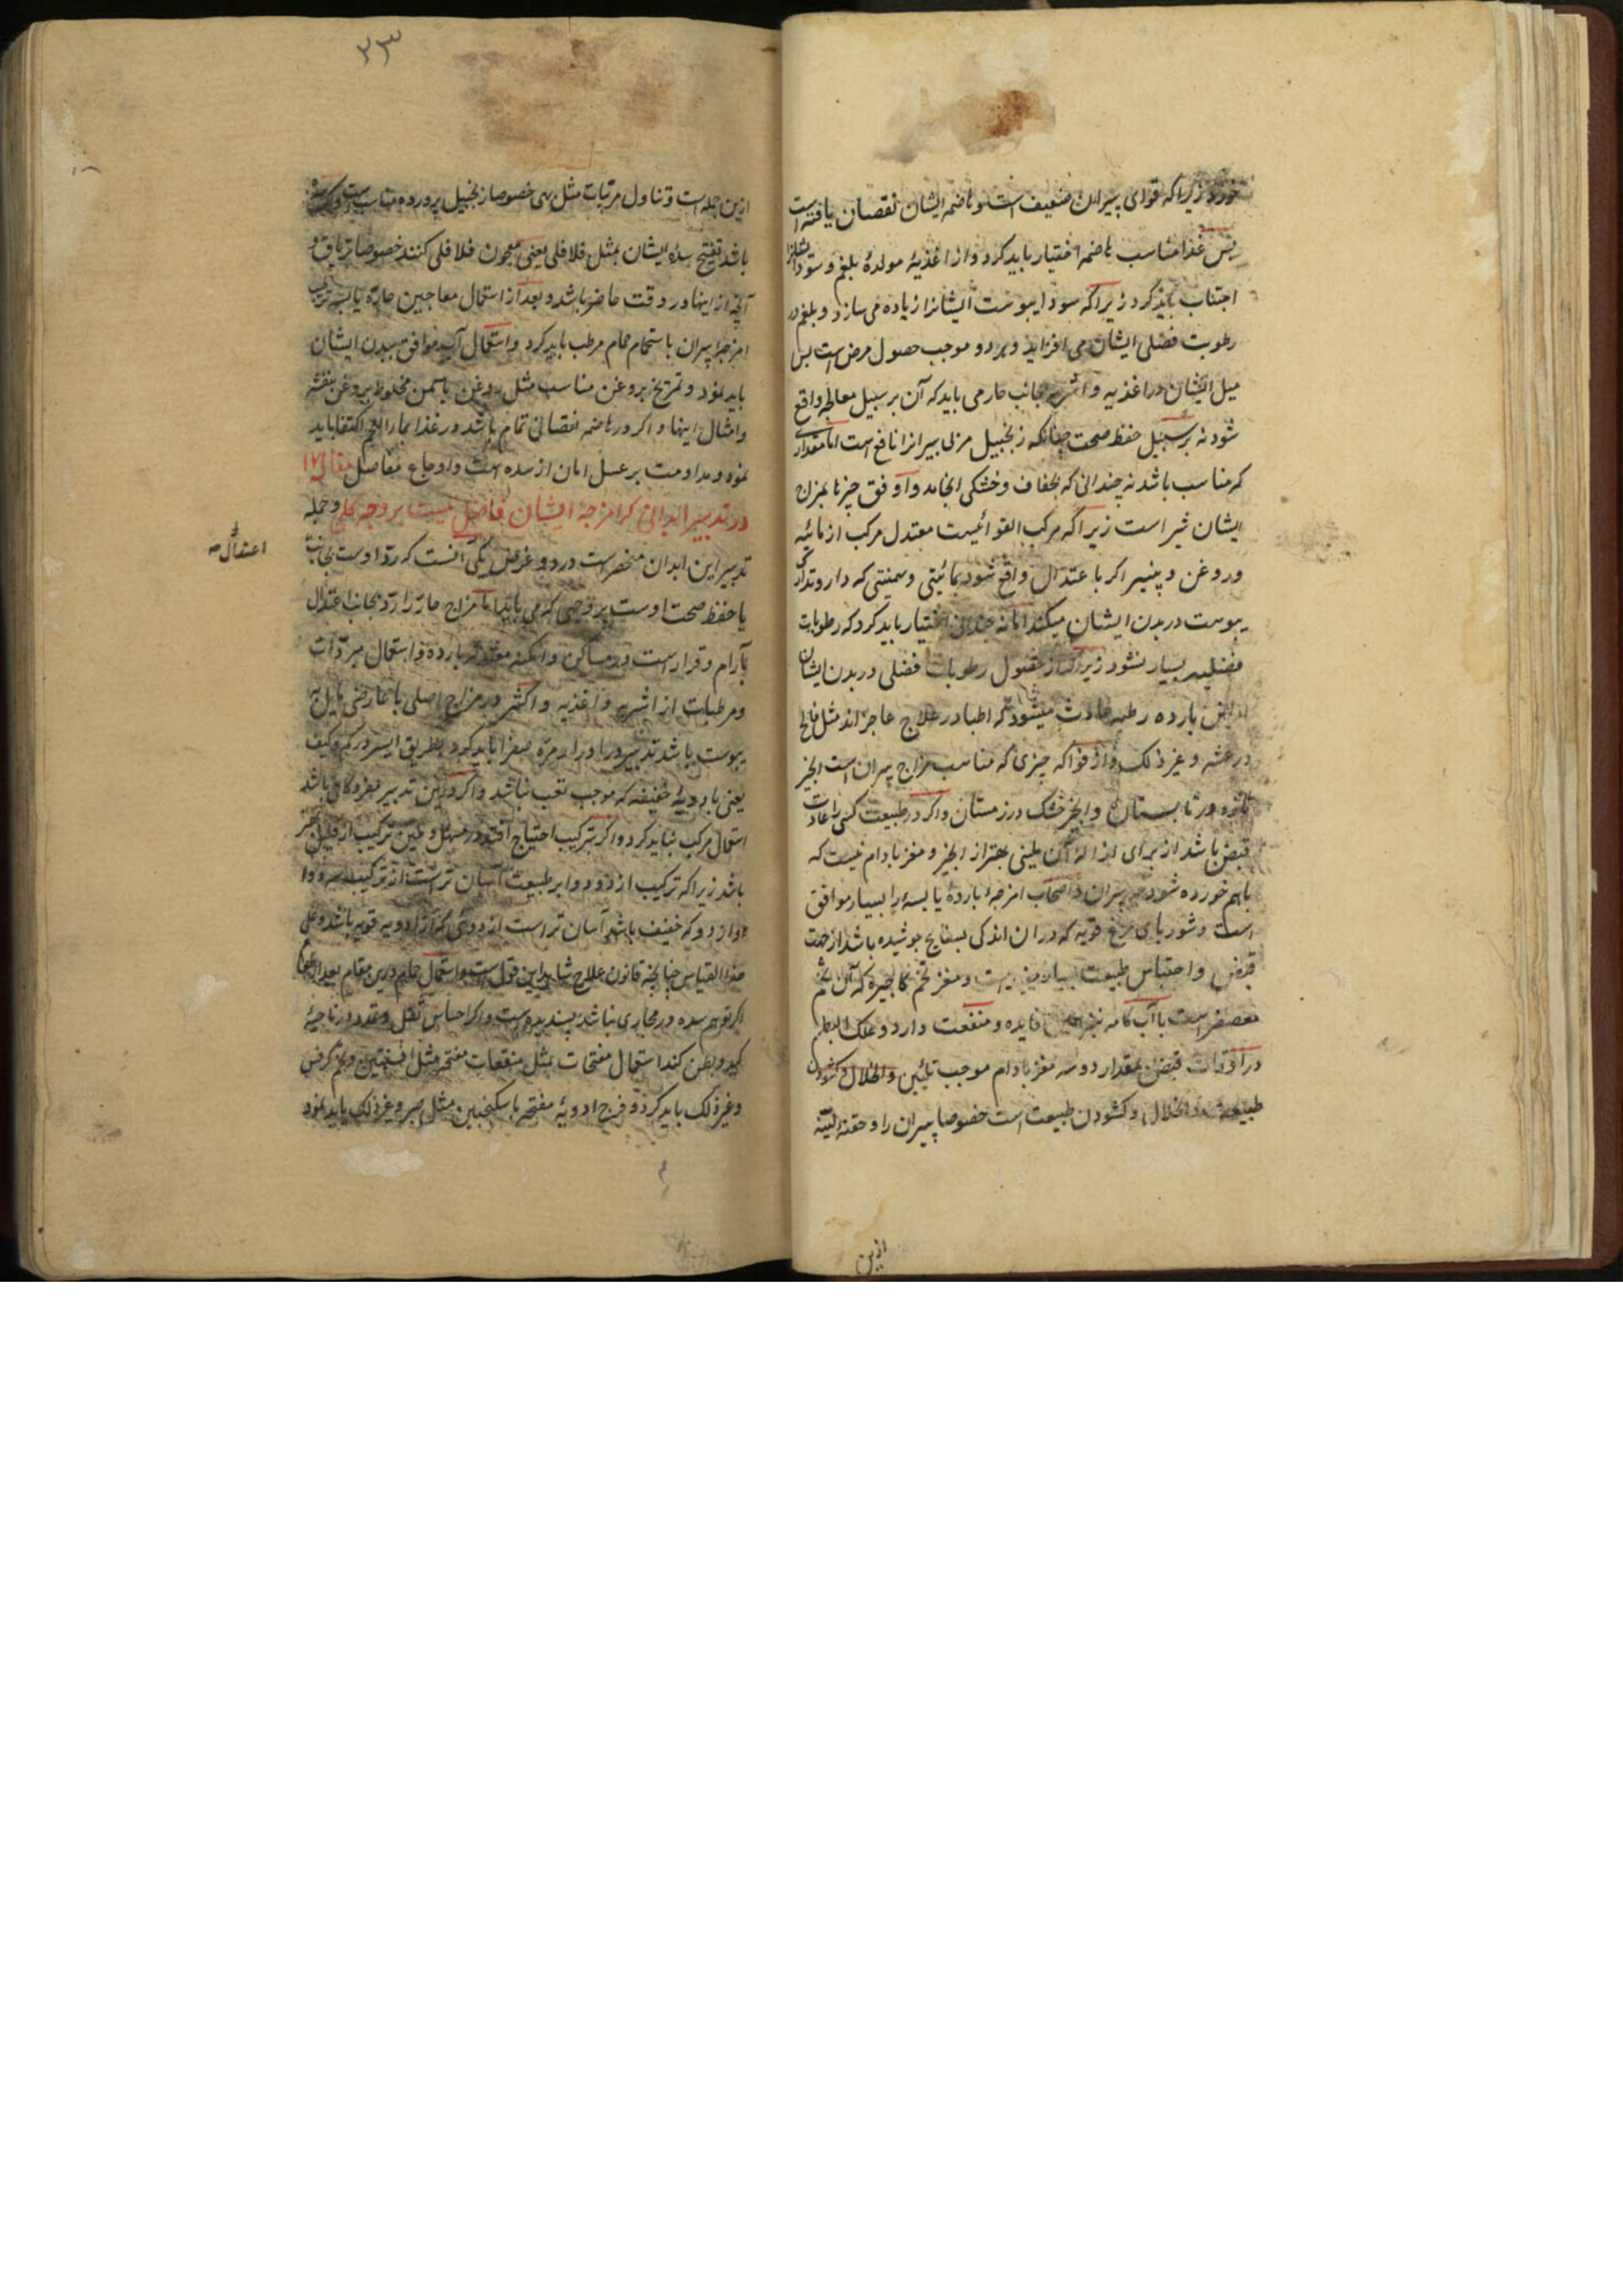 خورد زیراکه قوای پیران ضعیف است و هاضمه ایشان نقصان یافته است
پس غذا مناسب هاضمه اختیار باید کرد و از اغذیهٔ مولدهٔ بلغم و سودا ایشانرا
اجتناب باید کرد زیراکه سودا یبوست ایشانرا زیاده می سازد و بلغم در
رطوبت فضلی ایشان می افزاید و هر دو موجب حصول مرض است پس
میل ایشان در اغذیه و اشربه بجانب حار می باید که آن بر سبیل معالجه واقع
شود نه بر سبیل حفظ صحت چنانکه زنجبیل مربی پیرانرا نافع است اما مقداری
که مناسب باشد نه چندانی که بجفاف و خشکی انجامد و اوفق چیزها بمزاج
ایشان شیر است زیراکه مرکب القوا ئیست معتدل مرکب از مائیه
و روغن و پنیر اکر باعتدال واقع شود بمائیتی و سمنیتی که دارد تدارک
یبوست در بدن ایشان میکند اما نه چندانی اختیار باید کرد که رطوبات
فضلیه بسیار نشود زیراکه از حصول رطوبات فضلی در بدن ایشان
امراض بارده رطبه حادث میشود که اطبا در علاج عاجز اند مثل فالج
و رعشه و غیر ذلک و از فواکه چیزی که مناسب مزاج پیران است انجیر
تازه در تابستان و انجیر خشک در زمستان و اکر در طبیعت کسی را عادت
قبض باشد از برای ازالهٔ آن ملینی بهتر از انجیر و مغز بادام نیست که
باهم خورده شود پیران و اصحاب امزجهٔ باردهٔ یابسه را بسیار موافق
است و شوربای مرغ قویه که در ان اندکی بسفایج جوشیده باشد از جهت
قبض و احتباس طبیعت بسیار مفید است و مغز تخم کاجیره که آن تخم
معصفر است با آب کامه نیز همین فایده و منفعت دارد و علک البطم
در اوقات قبض بمقدار دو سه مغز بادام موجب تلیین و انحلال و کشودن
طبیعت و انحلال و کشودن طبیعت است خصوصا پیران را و حقنه لینه
ازین
۲۳
ازین جمله است و تناول مربیات مثل بهی خصوصا زنجبیل پرورده مناسب است و اکر سده
باشد تفتیح سدهٔ ایشان بمثل فلافلی یعنی معجون فلافلی کنند خصوصا تریاق و
آنچه از اینها در وقت حاضر باشد و بعد از استعمال معاجین حارهٔ یابسه ترطیب
امزجهٔ پیران باستحمام حمام مرطب باید کرد و استعمال آبی موافق ببدن ایشان
باید نمود و تمریخ بروغن مناسب مثل روغن یاسمن مخلوط بروغن بنفشه
و امثال اینها و اکر در هاضمه نقصانی تمام باشد در غذا بماء اللحم اکتفا باید
نمود و مداومت بر عسل امان از سده است و اوجاع مفاصل مقاله ۱۲
در تدبیر ابدانی که امزجهٔ ایشان فاضل نیست بر وجه کلی و جمله
تدبیر این ابدان منحصر است در دو غرض یکی آنست که رد اوست بجانب
یا حفظ صحت اوست بر وجهی که می باید اما مزاج حار را رد بجانب اعتدال
بآرام و قرار است در مساکن و امکنه معتدلهٔ بارده و استعمال مبردات
و مرطبات از اشربه و اغذیه و اکثر در مزاج اصلی یا عارضی مایل به
یبوست باشد تدبیر در ادرار مرهٔ صفرا باید کرد بطریق ایسر در کم و کیف
یعنی بادویهٔ خفیفه که موجب تعب نباشد و اکر درین تدبیر مفرد کافی باشد
استعمال مرکب نباید کرد و اکر بترکیب احتیاج افتد در مسهل و ملین ترکیب از قلیل بهتر
باشد زیراکه ترکیب از دو دوا بر طبیعت آسان تر است از ترکیب سه دوا
و از دو که خفیف باشد آسان تر است از دوی که از ادویه قویه باشد و علی
هذا القیاس چنانچه قانون علاج شاهد این قول است و استعمال حمام درین مقام بعد از طعام
اکر توهم سده در مجاری نباشد پسندیده است و اکر احساس ثقل و تمدد در ناحیهٔ
کبد و بطن کند استعمال مفتحات بمثل منقعات مفتحه مثل افسنتین و تخم کرفس
و غیر ذلک باید کرد و مزج ادویهٔ مفتحه با سکنجبین مثل صبر و غیر ذلک باید نمود
اعتدال